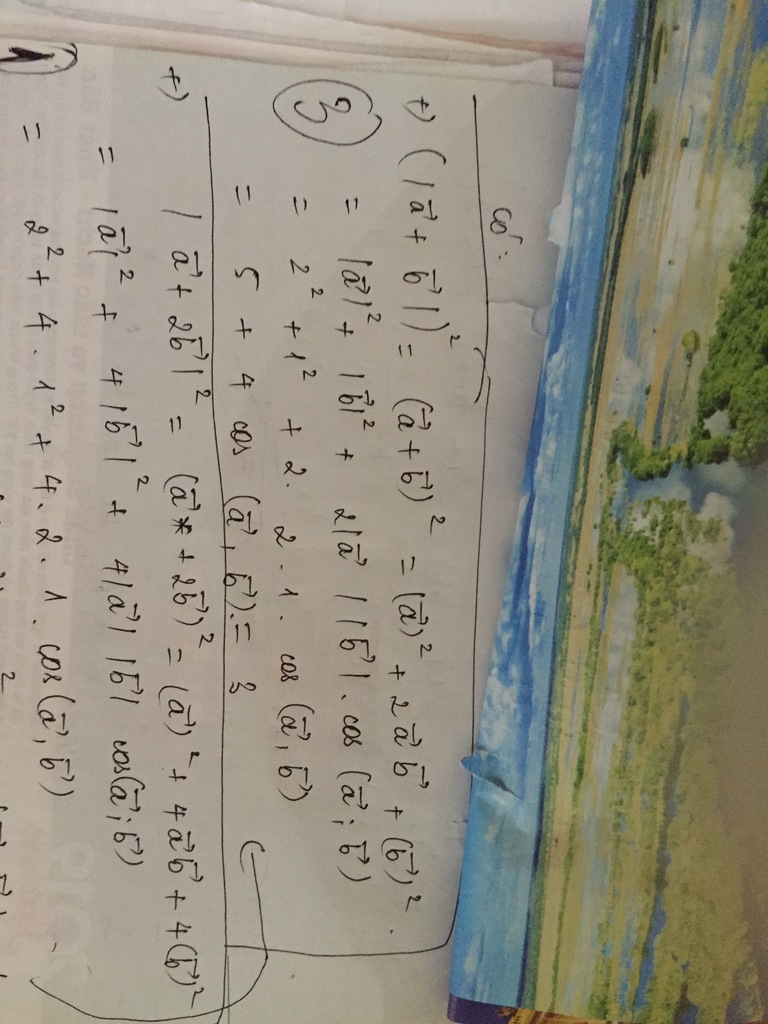 Có:
+) (|a⃗ + b⃗|)² = (a⃗ + b⃗)² = (a⃗)² + 2a⃗b⃗ + (b⃗)².
= |a⃗|² + |b⃗|² + 2|a⃗||b⃗|. cos (a⃗; b⃗)
③ = 2² + 1² + 2. 2. 1. cos (a⃗, b⃗)
= 5 + 4 cos (a⃗, b⃗) = 3
+) |a⃗ + 2b⃗|² = (a⃗ + 2b⃗)² = (a⃗)² + 4a⃗b⃗ + 4(b⃗)²
= |a⃗|² + 4|b⃗|² + 4|a⃗||b⃗| cos(a⃗; b⃗)
= 2² + 4. 1² + 4. 2. 1. cos(a⃗, b⃗)